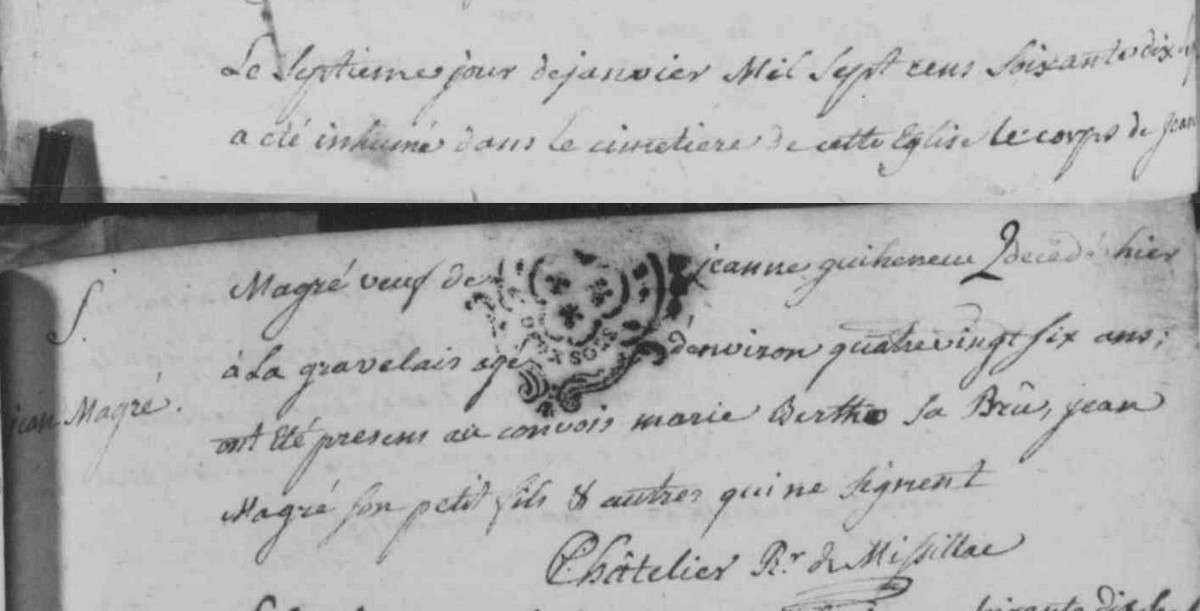 Le Septieme jour de janvier Mil Sept cens Soixante dix
a été inhumé dans le cimetiere de cette Eglise le corps de Jean
S.
Magré veuf de jeanne guiheneuc decedé hier
à La gravelais agé d'environ quatre vingt six ans;
jean Magré.
ont été presens au convois marie Berthe sa Brû, jean
Magré son petit fils & autres qui ne signent
Châtelier Rr de Missillac
DEUX SOLS